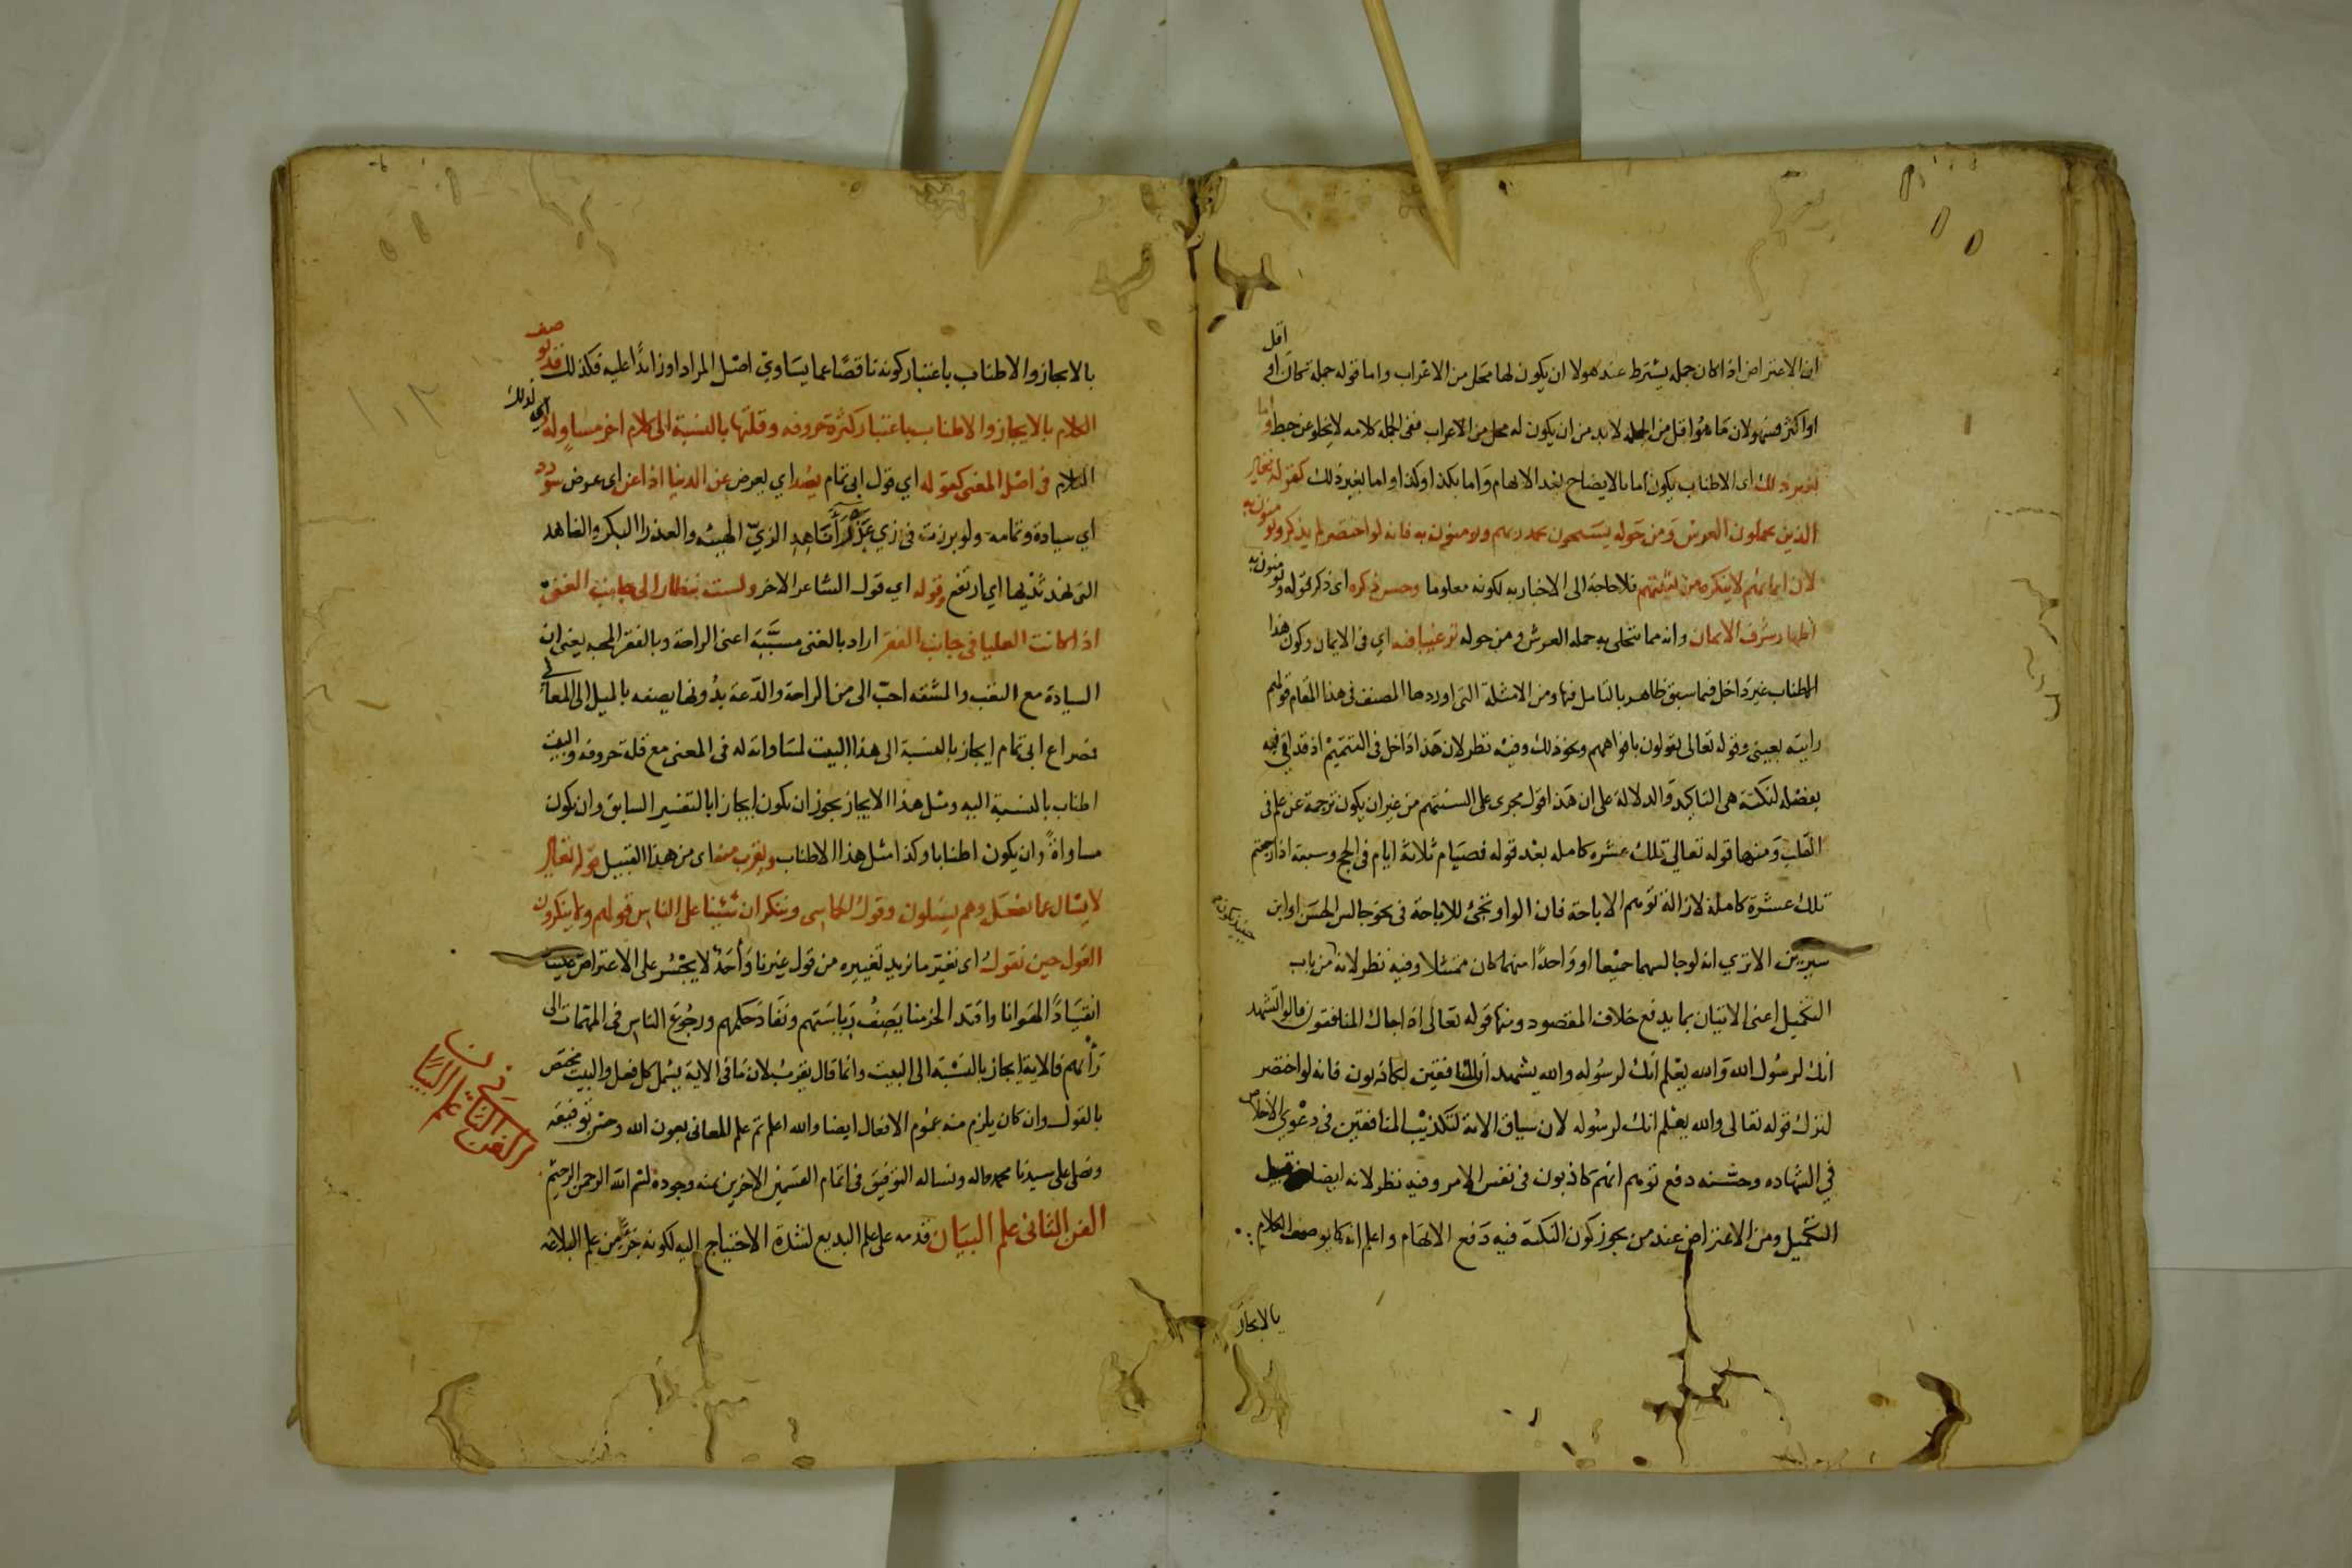 ان الاعتراض اذا كان جملة يشترط عند هولا ان يكون لها محل من الاعراب واما قوله جملة كان او اقل
او اكثر فسهو لان ما هو اقل من الجملة لابد من ان يكون له محل من الاعراب ففى الجملة كلامه لا يخلو عن خبط واما
بغير ذلك اى الاطناب يكون اما بالايضاح بعد الابهام واما بكذا وكذا واما بغير ذلك كقوله تعالى
الذين يحملون العرش ومن حوله يسبحون بحمد ربهم ويومنون به فانه لو اختصر لم يذكر ويومنون به
لان ايمانهم لا ينكره من يثبتهم فلا حاجة الى الاخبار به لكونه معلوما وحسن ذكره اى ذكر قوله ويومنون به
اظهار شرف الايمان وانه مما يتحلى به حملة العرش ومن حوله ترغيبا فيه اي فى الايمان وكون هذا
الاطناب غير داخل فيما سبق ظاهر بالتامل فيها ومن الامثلة التى اوردها المصنف فى هذا المقام قولهم
رايته بعينى وقوله تعالى يقولون بافواههم ونحو ذلك وفيه نظر لان هذا داخل فى التتميم اذ قد اتى فيه
بفضلة لنكتة هى التاكيد والدلالة على ان هذا قول يجرى على السنتهم من غير ان يكون ترجمة عن علم فى
القلب ومنها قوله تعالى تلك عشرة كاملة بعد قوله فصيام ثلاثة ايام فى الحج وسبعة اذا رجعتم
تلك عشرة كاملة لازالة توهم الاباحة فان الواو تجئ للاباحة فى نحو جالس الحسن او ابن
سيرين الا ترى انه لو جالسهما جميعا او واحدا منهما كان ممتثلا وفيه نظر لانه من باب
التكميل اعنى الاتيان بما يدفع خلاف المقصود ومنها قوله تعالى اذا جاك المنافقون قالوا نشهد
انك لرسول الله والله يعلم انك لرسوله والله يشهد ان المنافقين لكاذبون فانه لو اختصر
لترك قوله تعالى والله يعلم انك لرسوله لان سياق الاية لتكذيب المنافقين فى دعوى الاخلاص
في الشهاده وحسنه دفع توهم انهم كاذبون فى نفس الامر وفيه نظر لانه ايضا من قبيل
التكميل ومن الاعتراض عند من يجوز كون النكتة فيه دفع الايهام واعلم انه كما يوصف الكلام
بالايجاز
بالايجاز والاطناب باعتبار كونه ناقصا عما يساوي اصل المراد او زائدا عليه فكذلك قد يوصف
الكلام بالايجاز والاطناب باعتبار كثرة حروفه وقلتها بالنسبة الى كلام اخر مساو له اى لذلك
الكلام فى اصل المعنى كقوله اي قول ابى تمام يصد اي يعرض عن الدنيا اذا عن اى عرض سودد
اي سيادة وتمامه ولو برزت فى زي عذراء ناهد الزي الهيئه والعذرا البكر والناهد
التى نهد ثديها اي ارتفع وقوله اي قول الشاعر الاخر ولست بنظار الى جانب الغنى
اذا كانت العليا فى جانب الفقر اراد بالغنى مسببه اعنى الراحة وبالفقر المحنه يعنى ان
السيادة مع التعب والمشقه احب الى من الراحة والدعة بدونها يصفه بالميل الى المعالي
فمصراع ابى تمام ايجاز بالنسبة الى هذا البيت لمساواته له فى المعنى مع قلة حروفه والبيت
اطناب بالنسبة اليه ومثل هذا الايجاز يجوز ان يكون ايجازا بالتفسير السابق وان يكون
مساواة وان يكون اطنابا وكذا مثل هذا الاطناب ويقرب منه اى من هذا القبيل قوله تعالى
لا يسال عما يفعل وهم يسئلون وقول الحماسى وننكر ان شئنا على الناس قولهم ولا ينكرون
القول حين نقول اى نغير ما نريد تغييره من قول غيرنا واحد لا يجسر على الاعتراض علينا
انقيادا لهوانا واقتدا لحزمنا يصف رياستهم ونفاذ حكمهم ورجوع الناس فى المهمات الى
رأيهم فالاية ايجاز بالنسبة الى البيت وانما قال يقرب لان ما فى الاية يشمل كل فعل والبيت مختص
بالقول وان كان يلزم منه عموم الافعال ايضا والله اعلم تم علم المعانى بعون الله وحسن توفيقه
ونصلى على سيدنا محمد واله ونساله التوفيق فى اتمام القسمين الاخرين بمنه وجوده بسم الله الرحمن الرحيم
الفن الثانى علم البيان قدمه على علم البديع لشدة الاحتياج اليه لكونه جزءا من علم البلاغه
الفن الثانى علم البيان